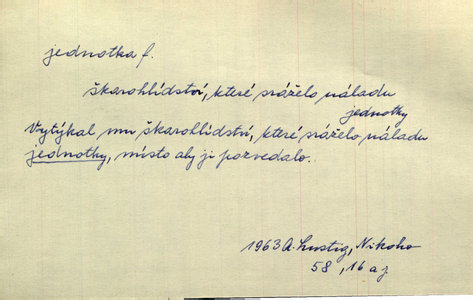 jednotka f.
škarohlídství, které sráželo náladu
jednotky
Vytýkal mu škarohlídství, které sráželo náladu
jednotky, místo aby ji pozvedalo.
1963 A. Lustig, Nikoho
58, 16 az